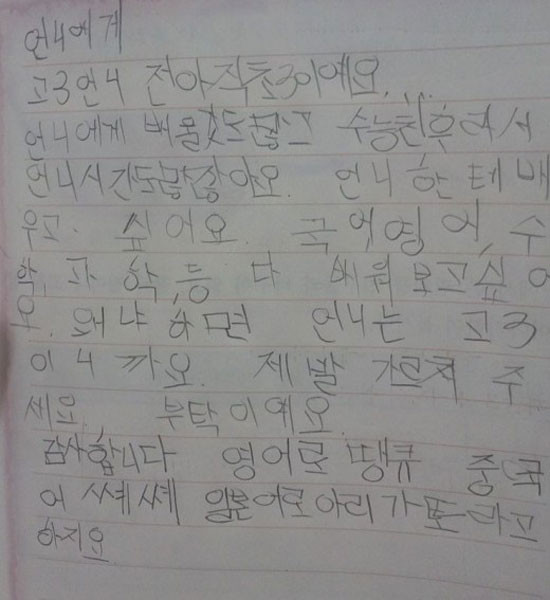 언니에게
고3언니 전아직초3이예요....
언니에게 배울것도많고 수능친후라서
언니시간도많잖아요. 언니한테배
우고. 싶어요. 국어,영어,수
학,과학,등 다 배워보고싶어
요. 왜냐하면 언니는 고3
이니까요. 제발 가르쳐 주
세요. 부탁이예요.
감사합니다 영어로 땡큐 중국
어 쎼쎼 일본어로아리가또라고
하지요